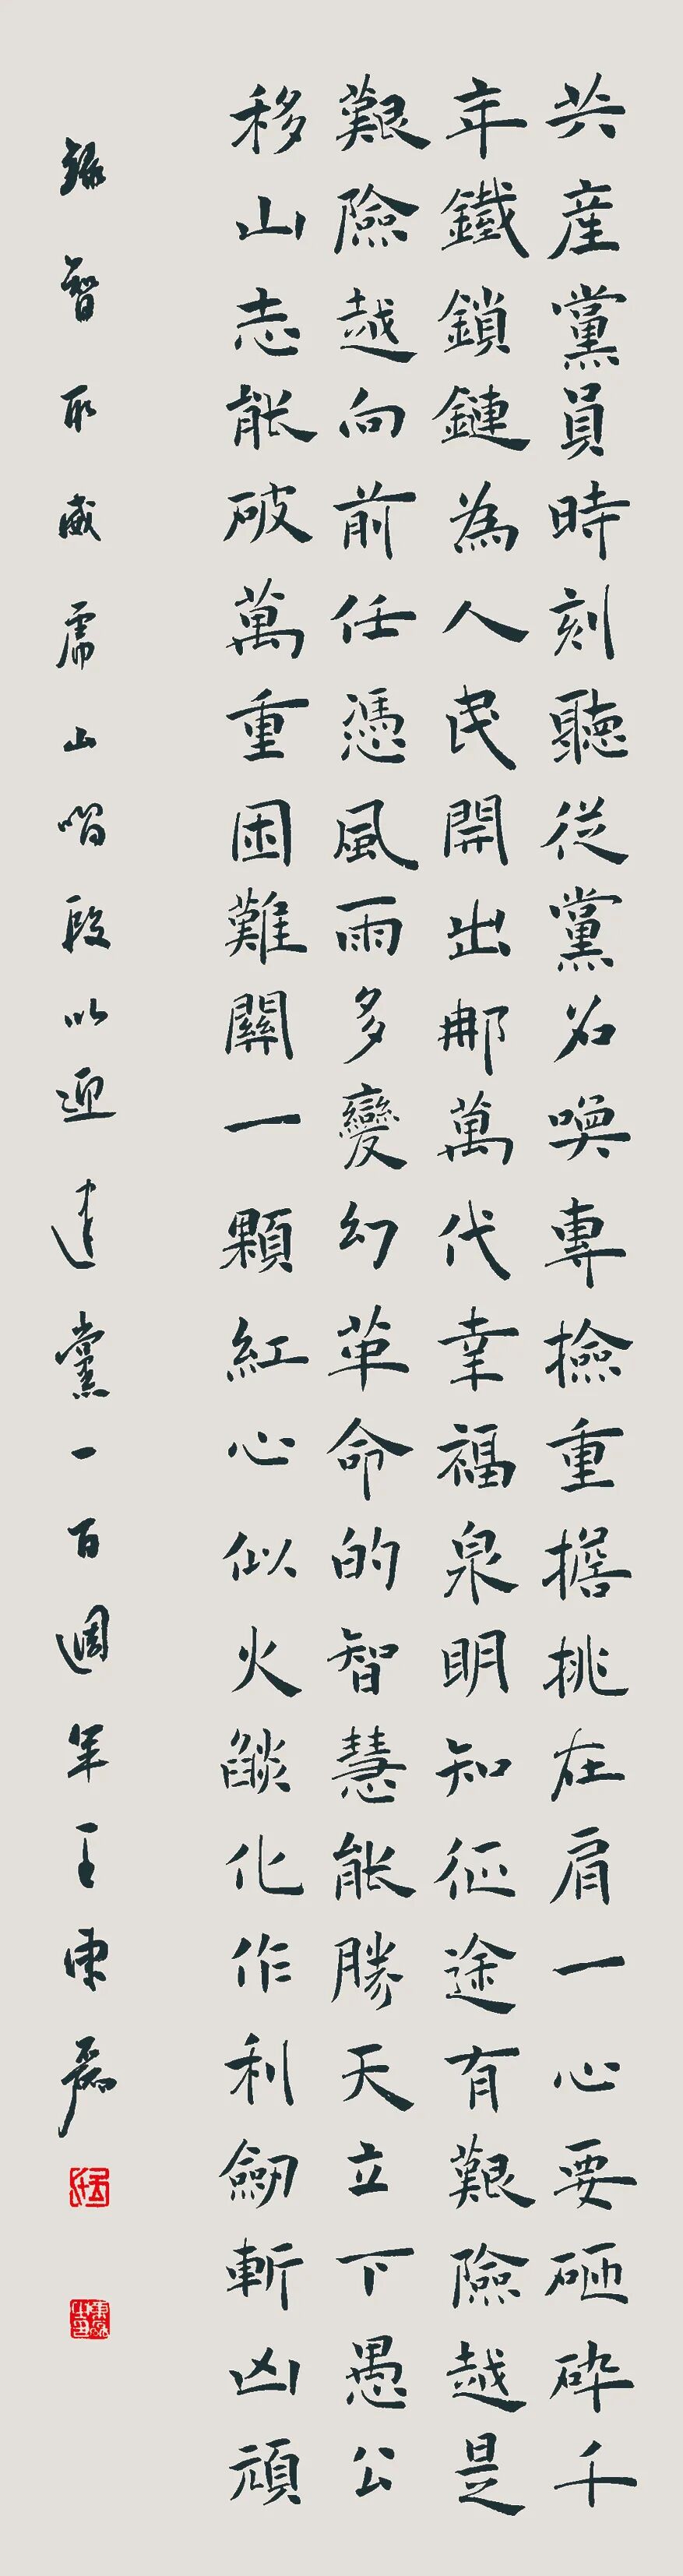 共產黨員時刻聽從黨召喚專撿重擔挑在肩一心要砸碎千
年鐵鎖鏈為人民開出那萬代幸福泉明知征途有艱險越是
艱險越向前任憑風雨多變幻革命的智慧能勝天立下愚公
移山志能破萬重困難關一顆紅心似火焰化作利劍斬凶頑
錄智取威虎山唱段以迎建黨一百週年王東